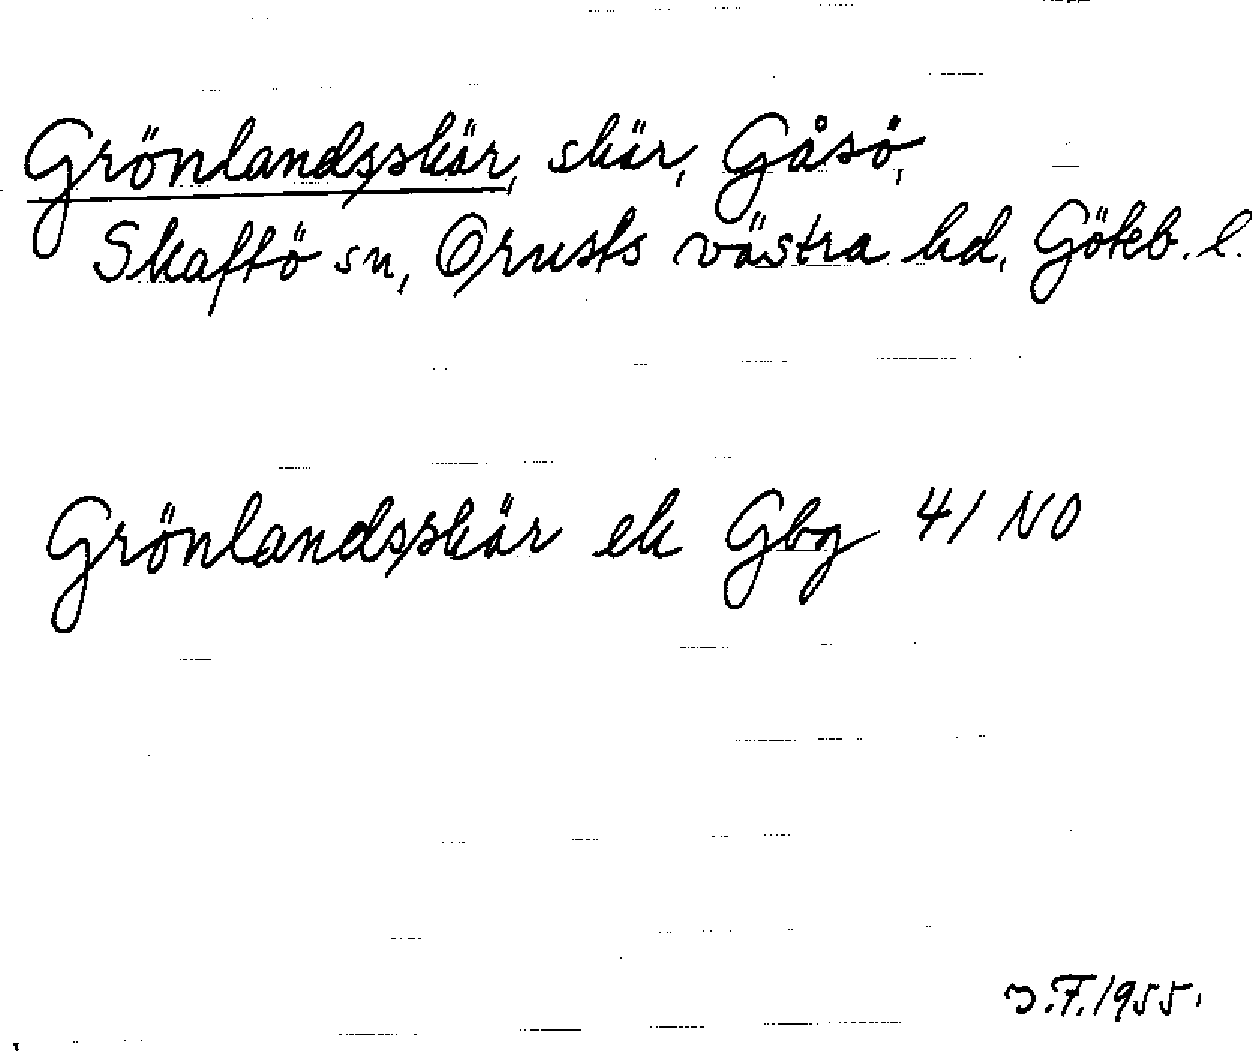 Grönlandsskär, skär, Gåsö,
Skaftö sn, Orusts västra hd, Göteb. l.
Grönlandsskär ek Gbg 41 NO
J.F. 1955.